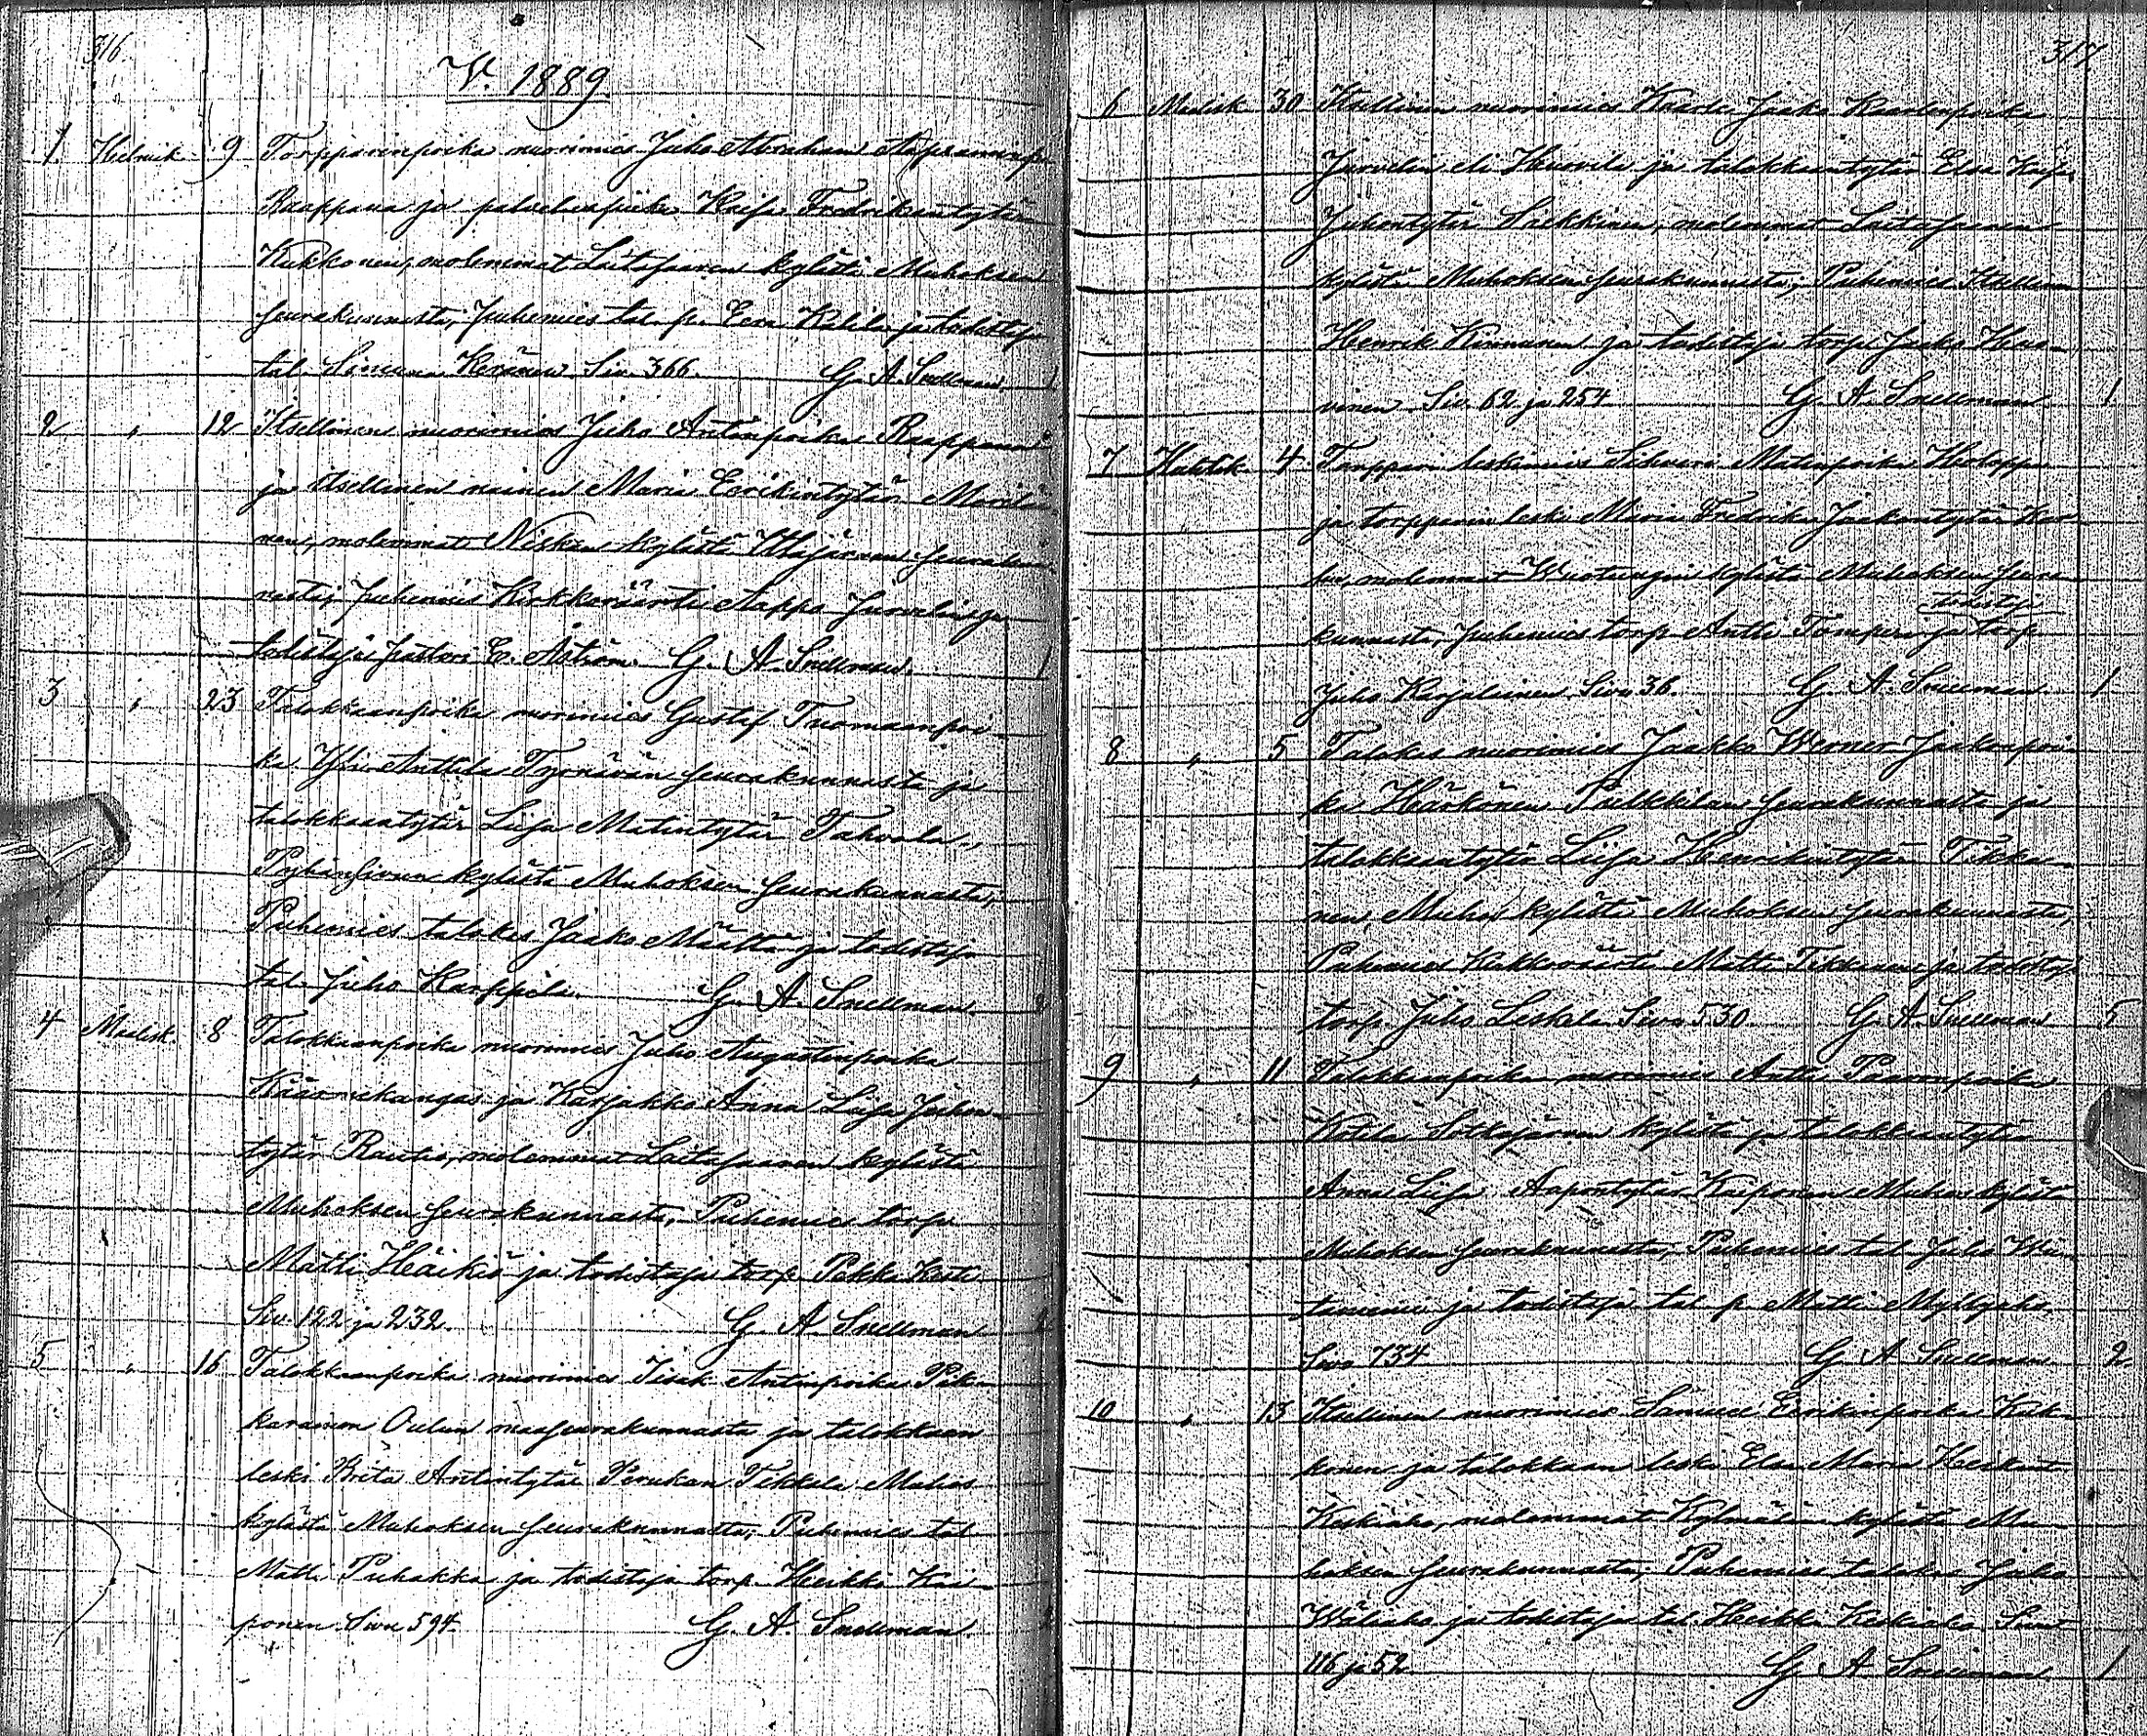 316
V. 1889
1 Helmik. 9 Torpparinpoika nuorimies Juho Abraham Aapraminp.
Raappana ja palvelianpiika Kaisa Fredrikintytär
Kukkonen, molemmat Laitasaaren kylästä Muhoksen
seurakunnasta; Puhemies tal. p. Eera Kukila ja todistaja
tal. Simuna Keränen. Siv. 366. G. A. Snellman.
2 " 12 Itsellinen nuorimies Juho Antinpoika Raappana 1
ja itsellinen nainen Maria Eerikintytär
molemmat Niskan kylästä Utajärven seurakun
nasta; Puhemies Kirkkoväärti Aappo Jurvelin ja
todistaja pastori E. Åström. G. A. Snellman. 1
3 " 23 Talokkaanpoika nuorimies Gustaf Tuomaanpoi-
ka Yli-Anttila Tyrnävän seurakunnasta ja
talokkaantytär Liisa Matintytär Tahvola,
Pyhänsivun kylästä Muhoksen seurakunnasta;
Puhemies talokas Jaako Määttä ja todistaja
tal. Juho Karppila. G. A. Snellman. 2
4 Maalisk. 8 Talokkaanpoika nuorimies Juho Augustinpoika
Käärnekangas ja Karjakko Anna Liisa Juhon-
tytär Rautio, molemmat Laitasaaren kylästä
Muhoksen seurakunnasta, Puhemies torp.
Matti Häikiö ja todistaja torp. Pekka Kesti
Siv. 122 ja 232. G. A. Snellman
5 " 16 Talokkaanpoika nuorimies Iisak Antinpoika Pik-
karainen Oulun maaseurakunnasta ja talokkaan
leski Brita Antintytär Perukan Tikkala Muhos
kylästä Muhoksen seurakunnasta; Puhemies tal
Matti Puhakka ja todistaja torp. Heikki Kai-
ponen Sivu 594. G. A. Snellman. 2
317
6 Maalisk 30 Itsellinen nuorimies Kaarlo Jaako Kaarlonpoika
Jurvelin eli Hurvila ja talokkaantytär Elsa Kaisa
Juhontytär molemmat Laitasaaren
kylästä Muhoksen seurakunnasta; Puhemies Itsellinen
Henrik Kinnunen ja todistaja torp. Jaako Haa-
vinen Siv. 62 ja 254 G. A. Snellman 1
7 Huhtik. 4 Torppari leskimies Matinpoika Holappa
ja torpparin leski Maria Fredrika Jaakontytär Kor-
hon, molemmat Kylästä Muhoksen seura-
todistaja
kunnasta, Puhemies torp. Antti Tomperi ja torp
Juho Karjalainen Sivu 36. G. A. Snellman 1
8 " 5 Talokas nuorimies Jaakko Werner Jaakonpoi-
ka Härkönen Pulkkilan seurakunnasta ja
talokkaantytär Liisa Henrikintytär Tikka-
nen, Muhos kylästä Muhoksen seurakunnasta;
Puhemies Kirkkoväärti Matti Tikkanen ja todistaja
torp. Juho Leskelä Sivu 530. G. A. Snellman 5
9 " 11 Talokkaanpoika nuorimies Antti Paavonpoika
Kotila Sotkajärven kylästä ja talokkaantytär
Anna Liisa Aapontytär Kaiponen Muhos kylästä
Muhoksen seurakunnasta; Puhemies tal. Juho Wii-
taniemi ja todistaja tal. p. Matti Myllyaho.
Sivu 734 G. A. Snellman 2
10 " 13 Itsellinen nuorimies Samuel Eerikinpoika Kuk-
konen ja talokkaan leski Elsa Maria Heikint.
Keskiaho, molemmat Kylmälän kylästä Mu-
hoksen seurakunnasta; Puhemies talokas Juho
Wäliaho ja todistaja tal. Heikki Keskiaho. Sivut
116 ja 52 G. A. Snellman. 1